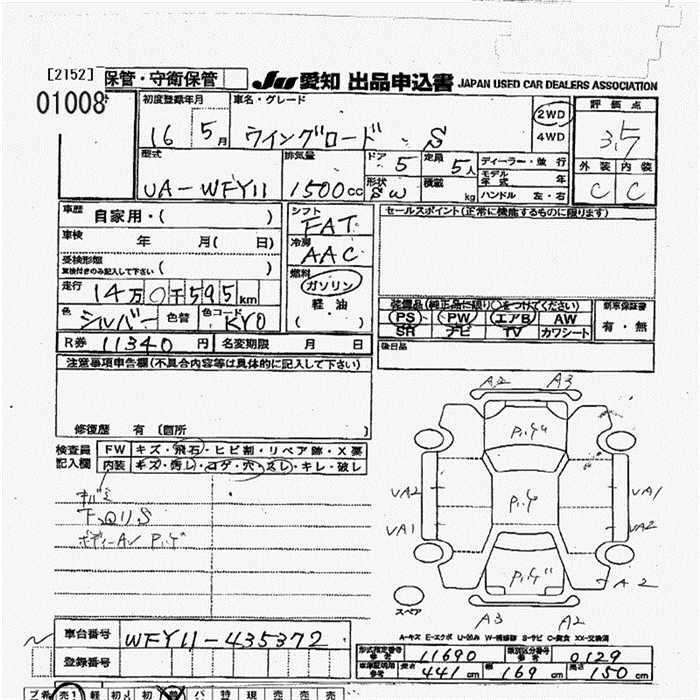 [2152] 保管・守衛保管 JU 愛知 出品申込書 JAPAN USED CAR DEALERS ASSOCIATION
01008
初度登録年月 車名・グレード 2WD 評価点
16 5月 ウイングロード S 4WD 3.5
型式 排気量 ドア 5 定員 5人 ディーラー・並行 外装 内装
UA-WFY11 1500cc 形状 SW 積載 kg モデル年式 年 ハンドル 左・右 C C
車歴 自家用・( ) シフト FAT セールスポイント(正常に機能するものに限ります)
車検 年 月( 日) 冷房 AAC
受検形態 車検付きのみ記入して下さい ( ) 燃料 ガソリン
走行 14万0千595km 軽油 装備品(純正品に限り○をつけてください) 新車保証書
色 シルバー 色替 色コード KY0 ( ) PS PW エアB AW 有・無
SR ナビ TV カワシート
R券 11340円 名変期限 月 日 後日品
注意事項申告欄(不具合内容等は具体的に記入して下さい)
A2 A3
修復歴 有 〔箇所 〕
検査員記入欄 FW キズ・飛石・ヒビ割・リペア跡・X要
内装 キズ・汚レ・コゲ・穴・スレ・キレ・破レ
UA2 UA1
UA1 UA2
A2
スペア
A3 A2
A-キズ E-エクボ U-凹み W-補修跡 S-サビ C-腐食 XX-交換済
車台番号 WFY11-435372
型式指定番号 参考 11690 類別区分番号 参考 0129
登録番号 車庫証明用 参考 長さ 441cm 幅 169cm 高さ 150cm